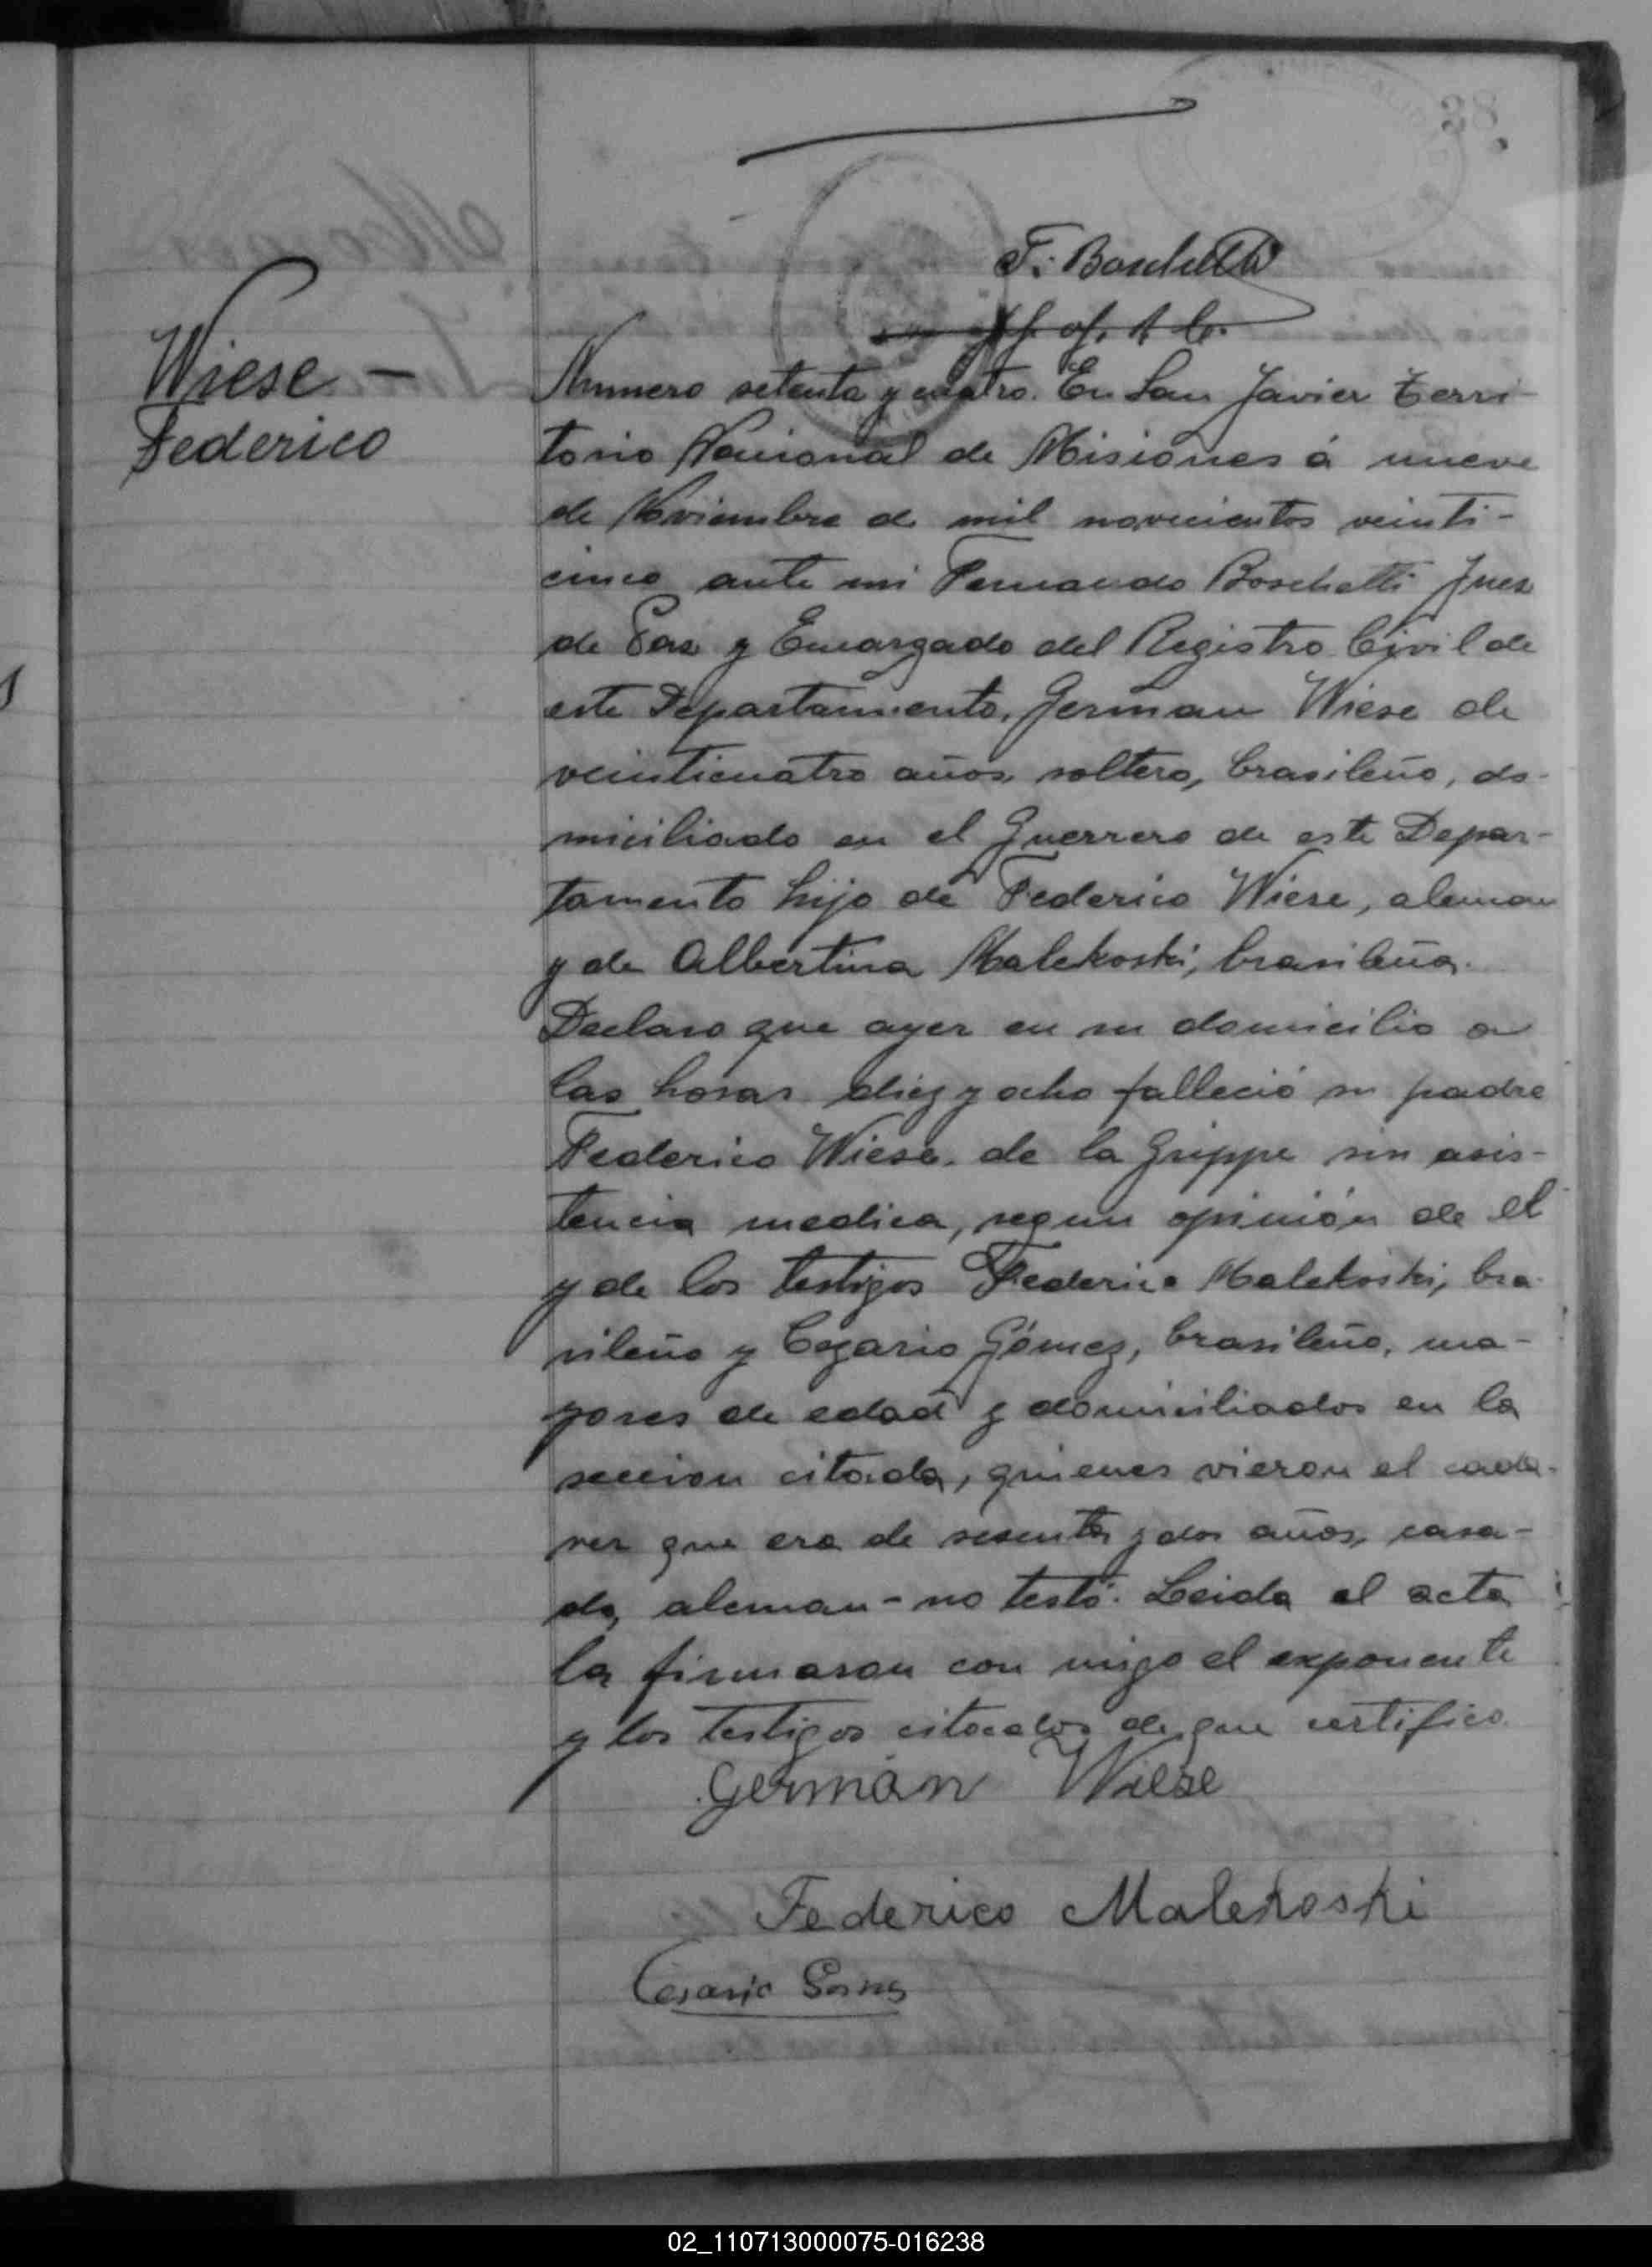 38
F. Boschetti
Wiese -
Federico
Numero setenta y cuatro. En San Javier Terri-
torio Nacional de Misiones á nueve
de Noviembre de mil novecientos veinti-
cinco ante mi Fernando Boschetti Juez
de Paz y Encargado del Registro Civil de
este Departamento, German Wiese de
veinticuatro años, soltero, brasileño, do-
miciliado en el Guerrero de este Depar-
tamento hijo de Federico Wiese, aleman
y de Albertina Malekoski, brasileña.
Declaro que ayer en su domicilio a
las horas diez y ocho falleció su padre
Federico Wiese. de la Grippe sin asis-
tencia medica, segun opinión de el
y de los testigos Federico Malekoski, bra-
sileño y Cezario Gómez, brasileño, ma-
yores de edad y domiciliados en la
seccion citada, quienes vieron el cada-
ver que era de sesenta y dos años, casa-
do, aleman - no testó. Leida el acta
la firmaron con migo el exponente
y los testigos citados de que certifico.
Germán Wiese
Federico Malekoski
Cesario Gomes
02_110713000075-016238